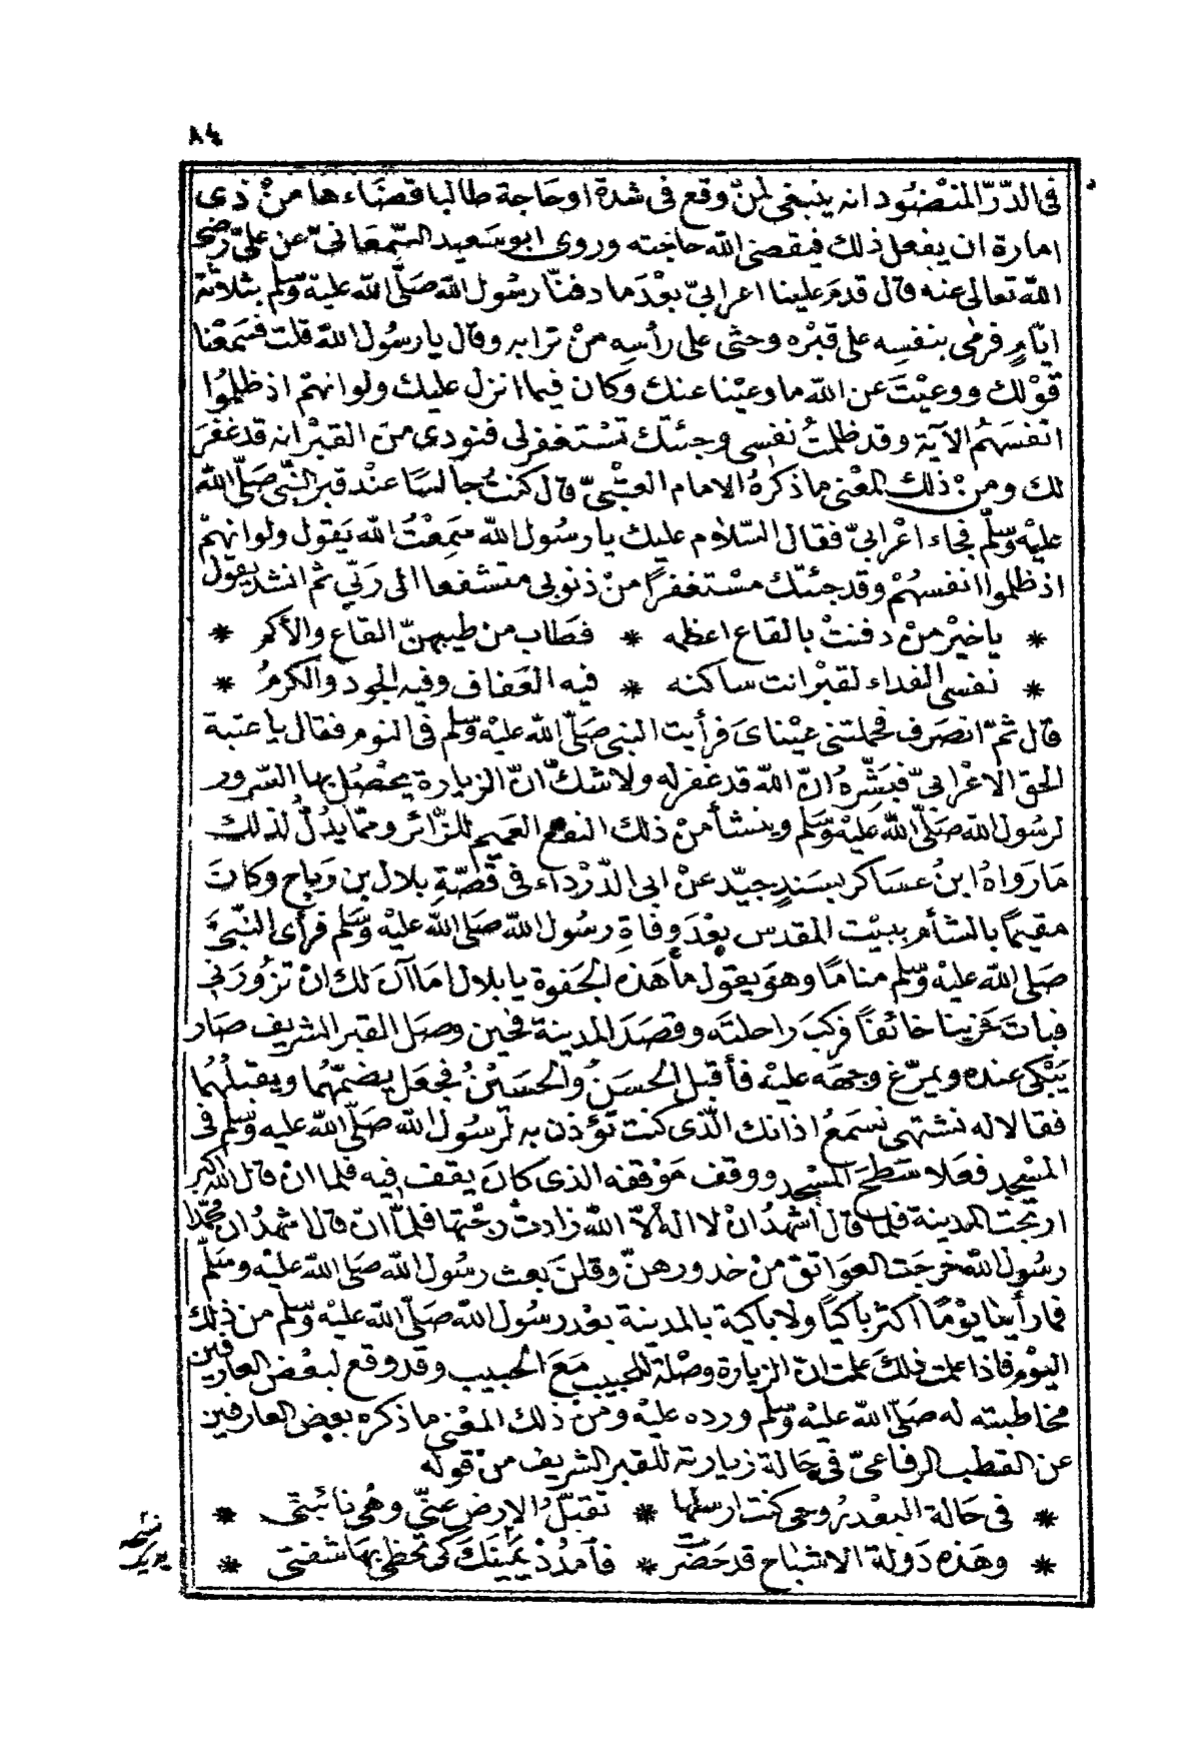 ٨٤
فى الدّرّ المنضُود انه ينبغى لمن وقع فى شدة او حاجة طالبا قضاءها منْ ذى
امارة ان يفعل ذلك فيقضى الله حاجته وروى ابو سَعيد السّمعَانىّ عن علىّ رضى
الله تعالى عنه قال قدمَ علينا اعرابىّ بعْدَ ما دفنّا رسُول الله صَلّى الله عليه وسّلم بثلاثة
ايّامٍ فرمى بنفسِه على قبْره وحثى على رأسِه منْ ترابه وقال يا رسُول اللهَ قلت فسَمعْنا
قوْلك ووعيْتَ عن الله ما وعيْنا عنك وكان فيما انزل عليك ولو انهمْ اذ ظلمُوا
انفسَهُم الآية وقد ظلمتُ نفسى وجئتك تسْتغفر لى فنودى منَ القبْر انه قد غفرَ
لك ومنْ ذلك المعْنى ما ذكرهُ الامام العتْبىّ قال كنتُ جالسًا عنْد قبر النّبى صَلّى الله
عليْه وسّلم فجاء اعْرابىّ فقال السّلام عليك يا رسُول الله سَمِعْتُ الله يَقول ولو انهمْ
اذ ظلموا انفسهُمْ وقد جئتك مسْتغفرًا منْ ذنوبى متشفعا الى رَبّى ثم انشد يقول
* يا خيْر منْ دفنتْ بالقاع اعظمه * فطاب من طيبهنّ القاع والأكم *
* نفسى الفداء لقبْر انت ساكنه * فيه العَفاف وفيه الجود والكرمُ *
قال ثمّ انصَرف فحملتنى عيْناىَ فرأيت النبى صَلّى الله عليْه وسّلم فى النوم فقال يا عتبة
الحق الاعْرابىّ فبَشّرهُ انّ الله قد غفر له ولا شكّ انّ الزيارة يحْصُل بها السّرور
لرسُول الله صَلّى الله عليْه وسّلم وينشأ منْ ذلك النفع العميم للزّائر وممّا يدُلّ لذلك
مَا رَواهُ ابنُ عسَاكر بسَندٍ جيّد عنْ ابى الدّرْداء فى قصّةِ بلال بن رَباح وكانَ
مقيمًا بالشأم ببيْت المقدس بعْدَ وفاةِ رسُول الله صَلى الله عليْه وسّلم فرأى النّبىَّ
صَلى الله عليْه وسّلم منامًا وهوَ يقول ما هَذه الجَفوة يا بلال امَا آنَ لك انْ تزُورَنى
فباتَ حَزينا خائفًا فركبَ راحلتَه وقصَدَ المدينة فحين وصَل القبر الشريف صَار
يَبْكى عنده ويمرّغ وجهَه عليْه فأقبل الحسَنُ والحسَيْنُ فجعَل يضمّهُما ويقبلهُما
فقالا له نشتهى نسمَعُ اذانك الّذى كنت تؤذن به لرسُول الله صَلّى الله عليه وسّلم فى
المسْجد فعَلا سَطحَ المسْجد ووقف مَوْقفه الذى كانَ يقف فيه فلما انْ قال الله اكبر
ارتجت المدينة فلما قال اشهدُ انْ لا اله الّا الله زادتْ رجّتها فلمّا ان قال اشهدُ ان محمّدا
رسُول الله خرَجَت العوَاتق منْ خدورهنّ وقلنَ بعث رسُول الله صَلى الله عليْه وسَلّم
فما رأيْنا يوْمًا اكثر باكيًا ولا باكية بالمدينة بعْد رسُول الله صَلّى الله عليْه وسّلم من ذلك
اليوْم فاذا علمت ذلكَ علمت انّ الزيارة وصْلة للحبيب مَعَ الحبيب وقد وقع لبعْض العارفين
مخاطبته له صَلّى الله عليْه وسّلم ورده عليْه ومنْ ذلك المعْنى ما ذكره بعض العارفين
عن القطب الرفاعىّ فى حَالة زيارته للقبر الشريف منْ قوله
* فى حَالة البعْد رُوحى كنت ارسلها * تقبّلُ الارض عنّى وهْى نائبتى *
* وهَذه دَولة الاشباح قد حَضرت * فامدُدْ يَمينَكَ كى تحظى بها شفتى *
نسخه
يديك